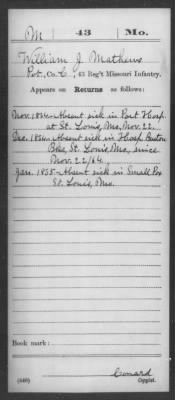 M 43 Mo.
William J. Mathews
Pvt., Co. C, 43 Reg't Missouri Infantry.
Appears on Returns as follows:
Nov. 1864 Absent sick in Post Hosp.
at St. Louis, Mo, Nov. 22.
Dec. 1864 Absent sick in Hosp Benton
Bks. St. Louis, Mo, since
Nov. 22/64.
Jan. 1865 Absent sick in Small Pox
St. Louis, Mo.
Book mark:
(646)
Conard
Copyist.